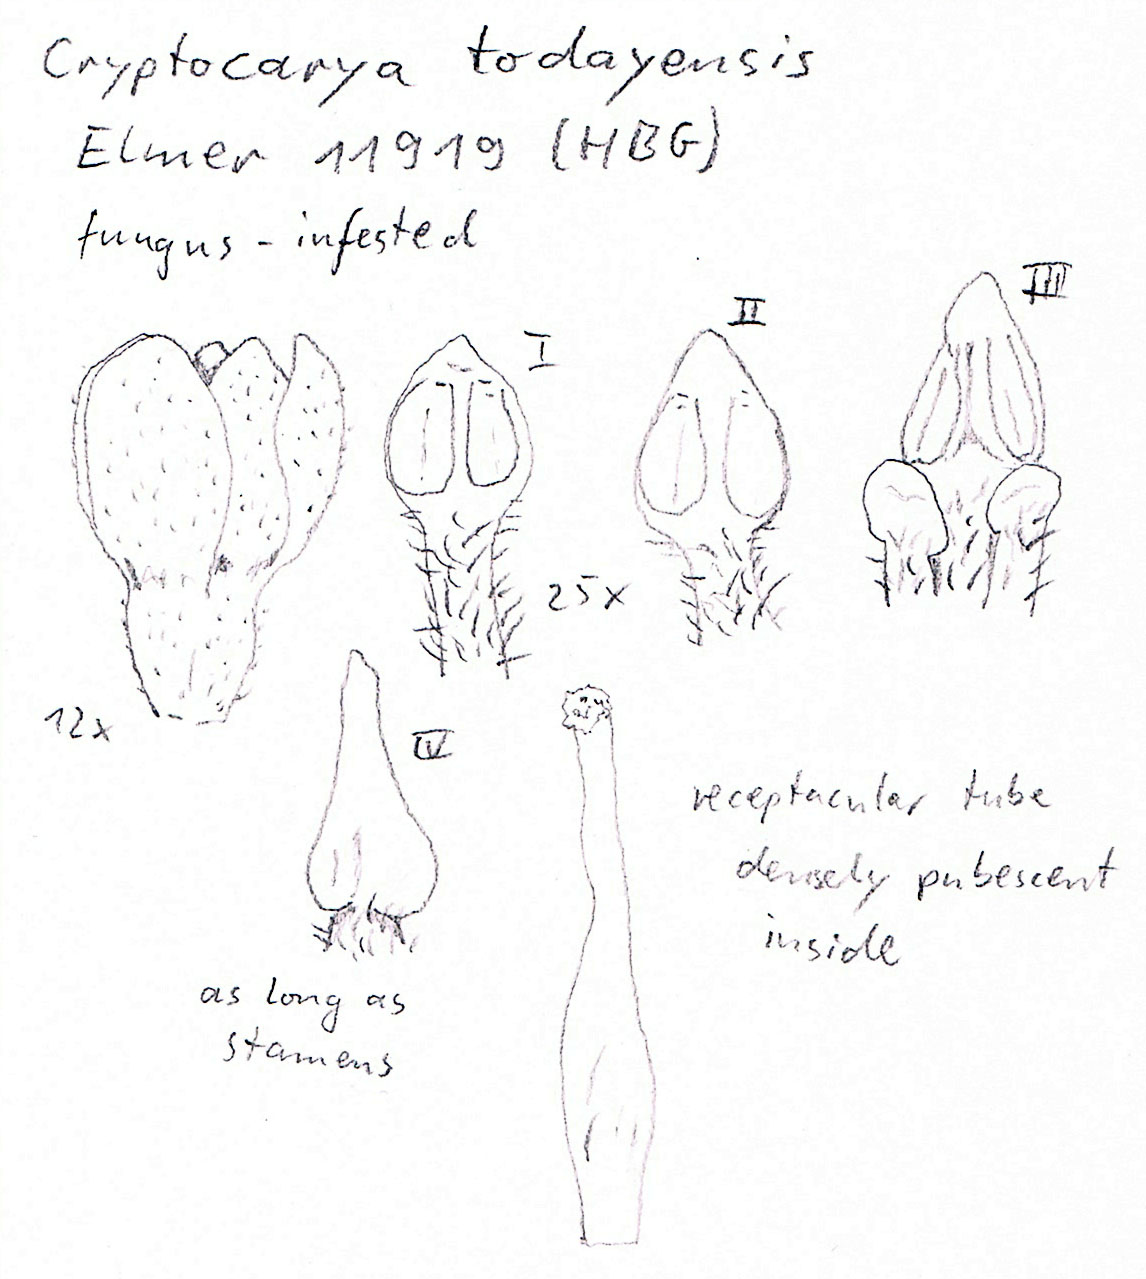 Cryptocarya todayensis
Elmer 11919 (HBG)
fungus - infested
I
II
III
25x
12x
IV
receptacular tube
densely pubescent
inside
as long as
stamens